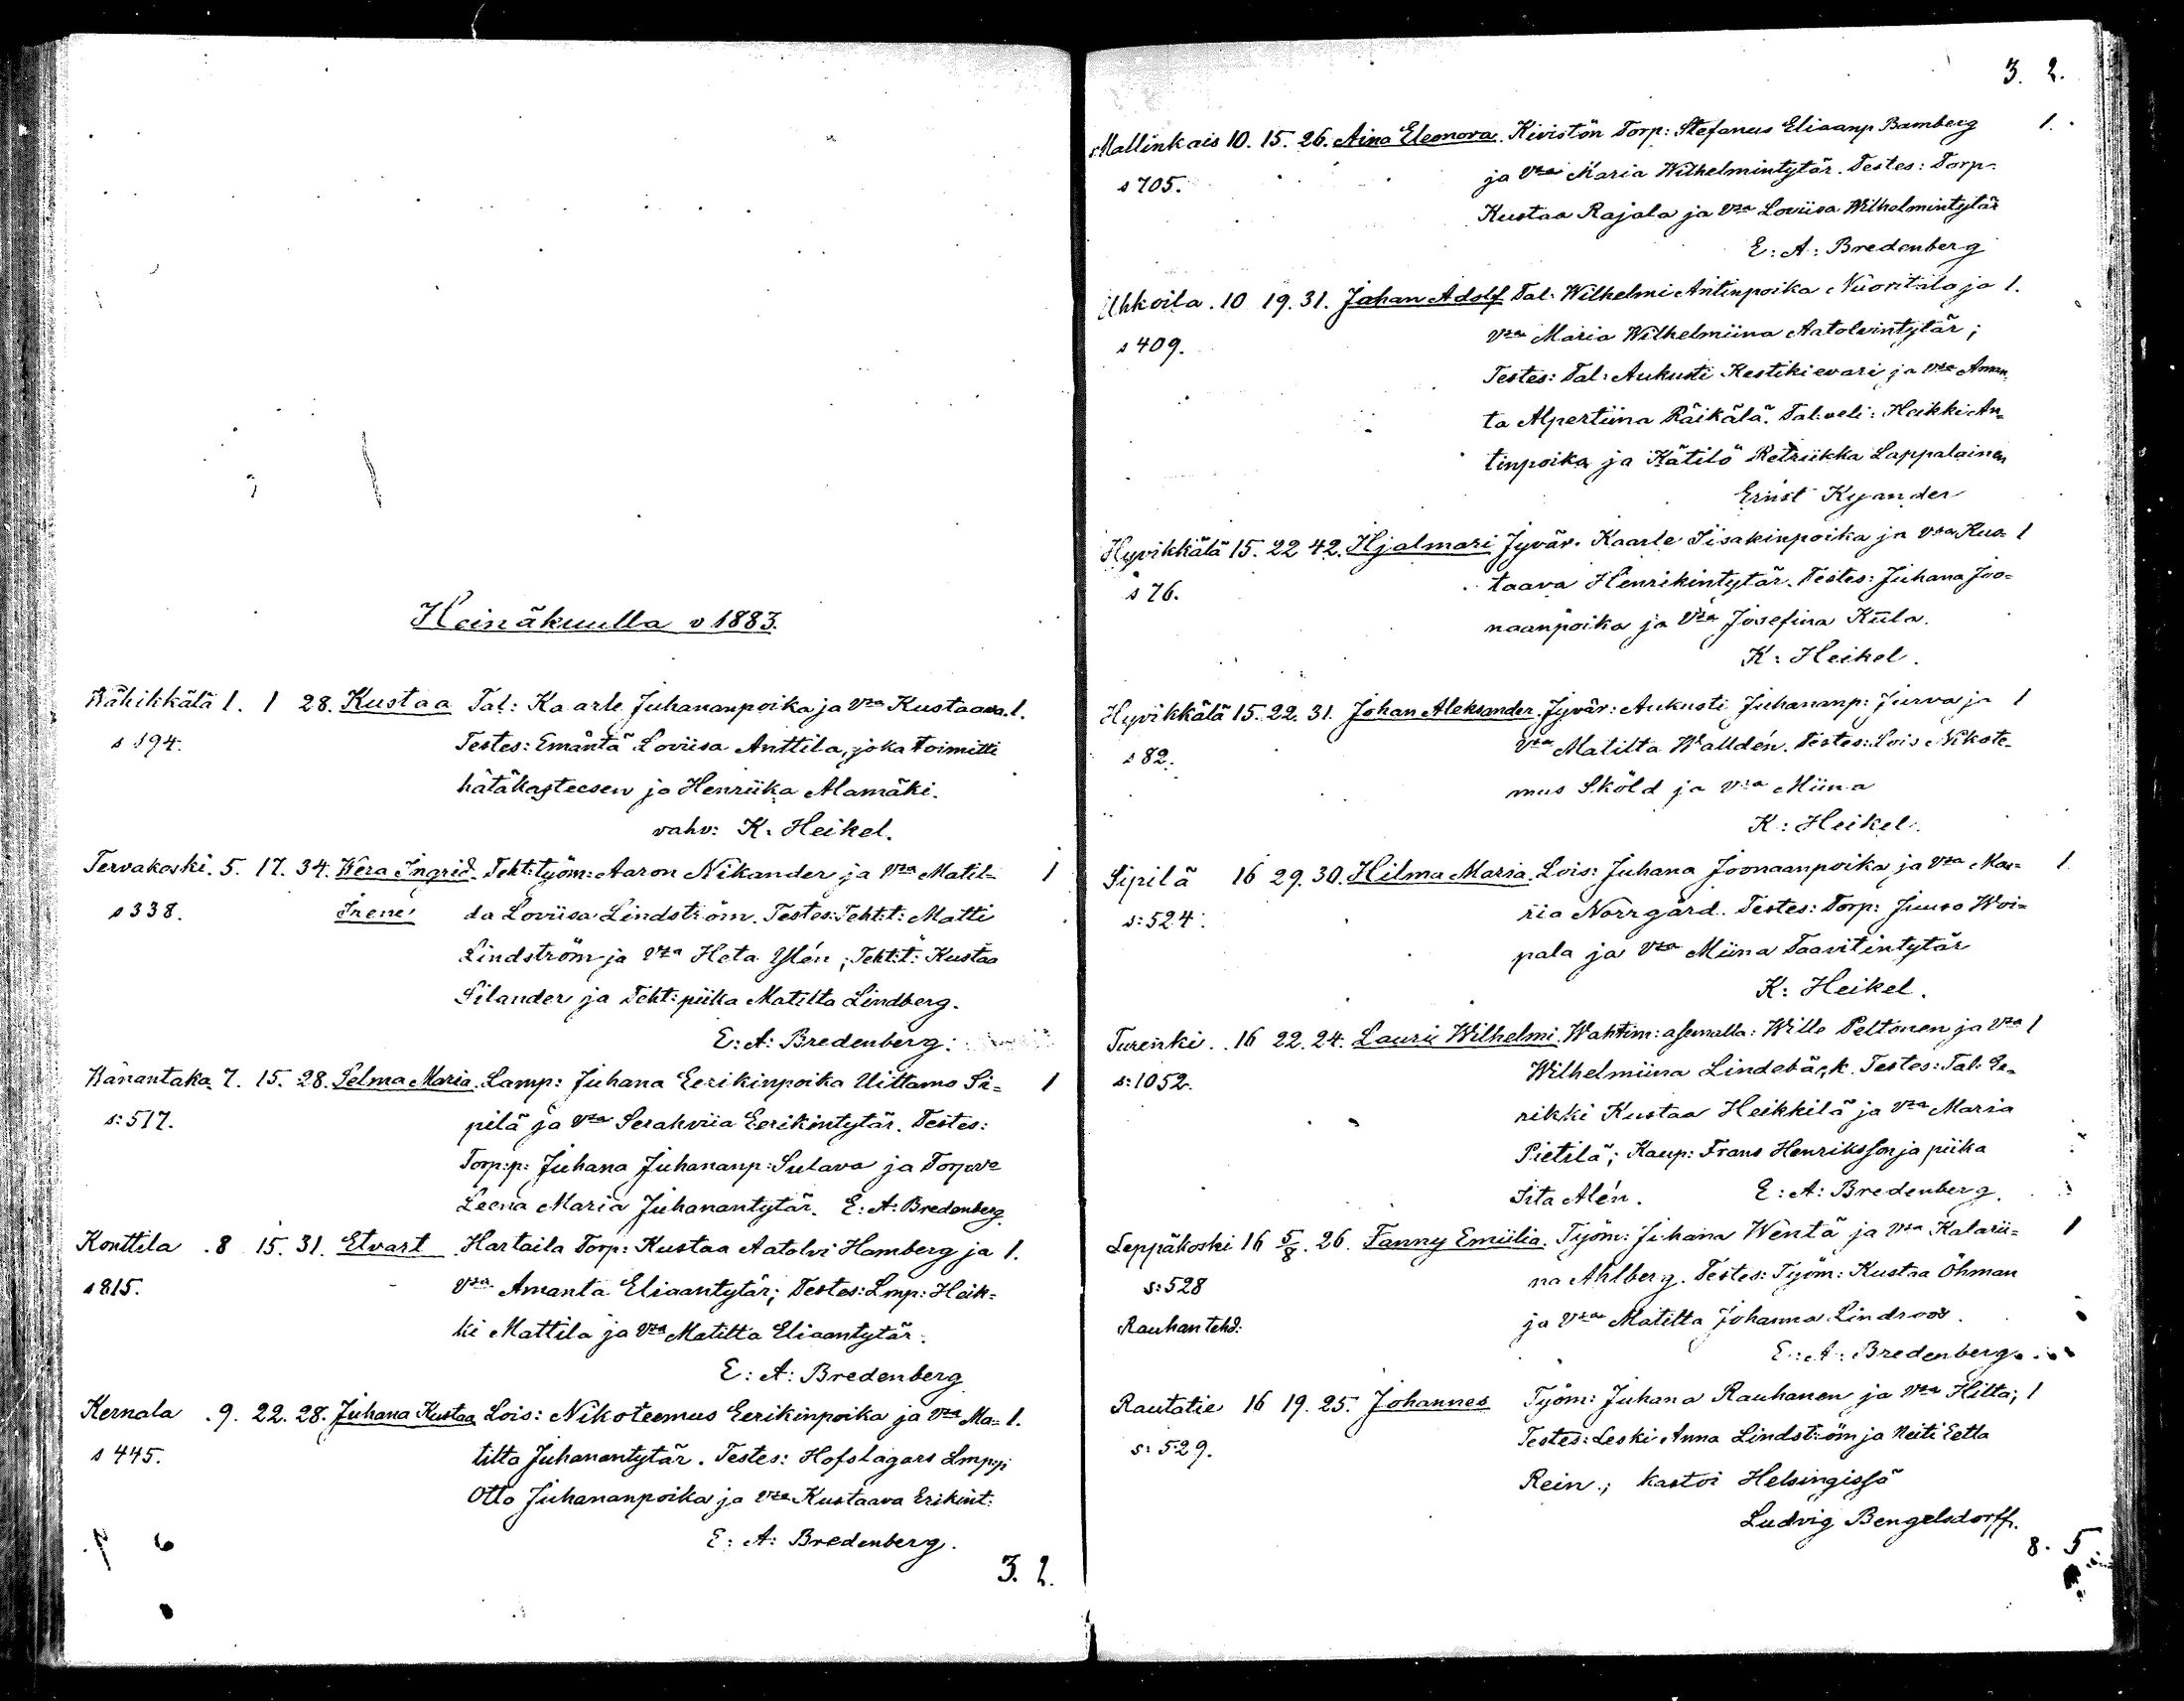 Heinäkuulla v 1883.
Rähikkälä 1. 1 28. Kustaa Tal: Kaarle Juhananpoika ja Vza Kustaava. 1.
s 194. Testes: Emäntä Loviisa Anttila, joka toimitti
hätäkasteesen ja Henriika Alamäki.
vahv: K: Heikel.
Tervakoski. 5. 17. 34. Wera Ingrid. Teht: työm: Aaron Nikander ja Vza Matil= 1
s 338. Irene da Loviisa Lindström. Testes: Teht: t: Matti
Lindström ja Vza Heta Ylén; Teht: t: Kustaa
Silander ja Teht: piika Matilta Lindberg.
E: A: Bredenberg:
Wanantaka 7. 15. 28. Selma Maria. Lamp: Juhana Eerikinpoika Uittamo Si= 1
s: 517. pilä ja Vza Serahviia Eerikintytär. Testes:
Torp: p: Juhana Juhananp: Sulava ja Torp: vo
Leena Maria Juhanantytär. E: A: Bredenberg.
Konttila . 8 15. 31. Etvart Hartaila Torp: Kustaa Aatolvi Hamberg ja 1.
s 815. Vza Amanta Eliaantytär; Testes: Lmp: Heik=
ki Mattila ja Vza Matilta Eliaantytär.
E: A: Bredenberg
Kernala . 9. 22. 28. Juhana Kustaa Lois: Nikoteemus Eerikinpoika ja Vza Ma= 1.
s 445. tilta Juhanantytär. Testes: Hofslagars Lmp: p:
Otto Juhananpoika ja Vza Kustaava Erikint:
E: A: Bredenberg.
3. 2.
3. 2.
Mallinkais 10. 15. 26. Aina Eleonora. Kivistön Torp: Stefanus Eliaanp Bamberg 1.
s 705. ja Vza Maria Wilhelmintytär. Testes: Torp.
Kustaa Rajala ja Vza Loviisa Wilhelmintytär
E: A: Bredenberg
Uhkoila . 10 19. 31. Johan Adolf Tal: Wilhelmi Antinpoika Nuoritalo ja 1.
s 409. Vza Maria Wilhelmiina Aatolvintytär;
Testes: Tal: Aukusti Kestikievari ja Vza Aman
ta Alpertiina Räikälä. Tal: veli: Heikki An=
tinpoika ja Kätilö Retriikka Lappalainen
Ernst Kyander
Hyvikkälä 15. 22 42. Hjalmari Jyvär. Kaarle Iisakinpoika ja vza Kus= 1
s 76. taava Henrikintytär. Testes: Juhana Joo=
naanpoika ja Vza Josefina Küla.
K: Heikel.
Hyvikkälä 15. 22. 31. Johan Aleksander. Jyvär: Aukusti Juhananp: Jurva ja 1
s 82. Vza Matilta Walldén. Testes: Lois Nikote=
mus Sköld ja vza Miina
K: Heikel.
Sipilä 16 29. 30. Hilma Maria. Lois: Juhana Joonaanpoika ja Vza Ma= 1.
s: 524. ria Norrgård. Testes: Torp: Juuso Woi=
pala ja Vza Miina Taavitintytär
K: Heikel.
Turenki. . 16 22. 24. Lauri Wilhelmi. Wahtim: asemalla: Wille Peltonen ja Vza 1
s: 1052. Wilhelmiina Lindebäck. Testes: Tal: Ee=
rikki Kustaa Heikkilä ja Vza Maria
Pietilä; Kaup: Frans Henriksson ja piika
Iita Alén. E: A: Bredenberg.
Leppäkoski 16 5/8. 26. Fanny Emiilia. Työm: Juhana Wentä ja Vza Katarii= 1
s: 528 na Ahlberg. Testes: Työm: Kustaa Öhman
Rauhan tehd: ja Vza Matilta Johanna Lindroos.
E: A: Bredenberg.
Rautatie 16 19. 25. Johannes Työm: Juhana Rauhanen ja Vza Hilta; 1
s: 529. Testes: Leski Anna Lindström ja Neiti Eetla
Rein.; kastoi Helsingissä
Ludvig Bengelsdorff.
8. 5